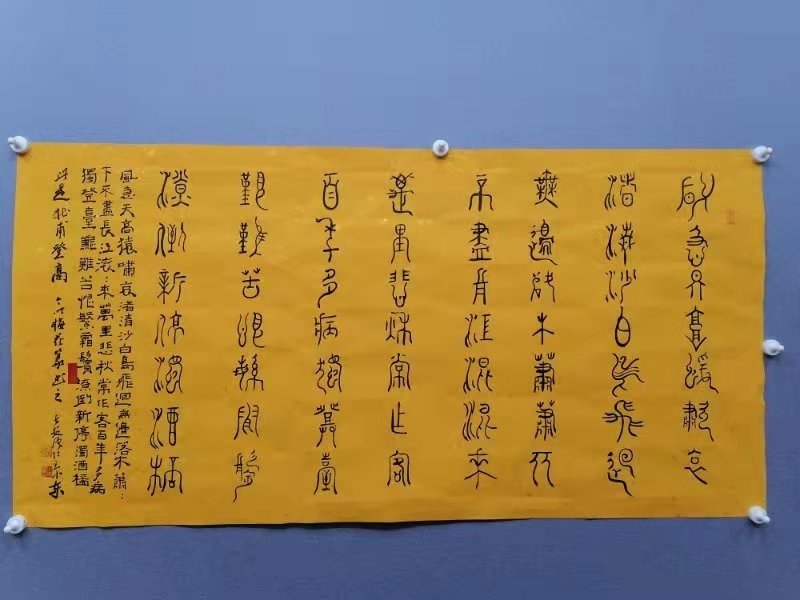 風急天高猿嘯哀
渚清沙白鳥飛迴
無邊落木蕭蕭下
不盡長江滾滾來
萬里悲秋常作客
百年多病獨登臺
艱難苦恨繁霜鬢
潦倒新停濁酒杯
風急天高猿嘯哀渚清沙白鳥飛迴無邊落木蕭:
下不盡長江滾:來萬里悲秋常作客百年多病
獨登臺艱難苦恨繁霜鬢潦倒新停濁酒杯
杜甫登高